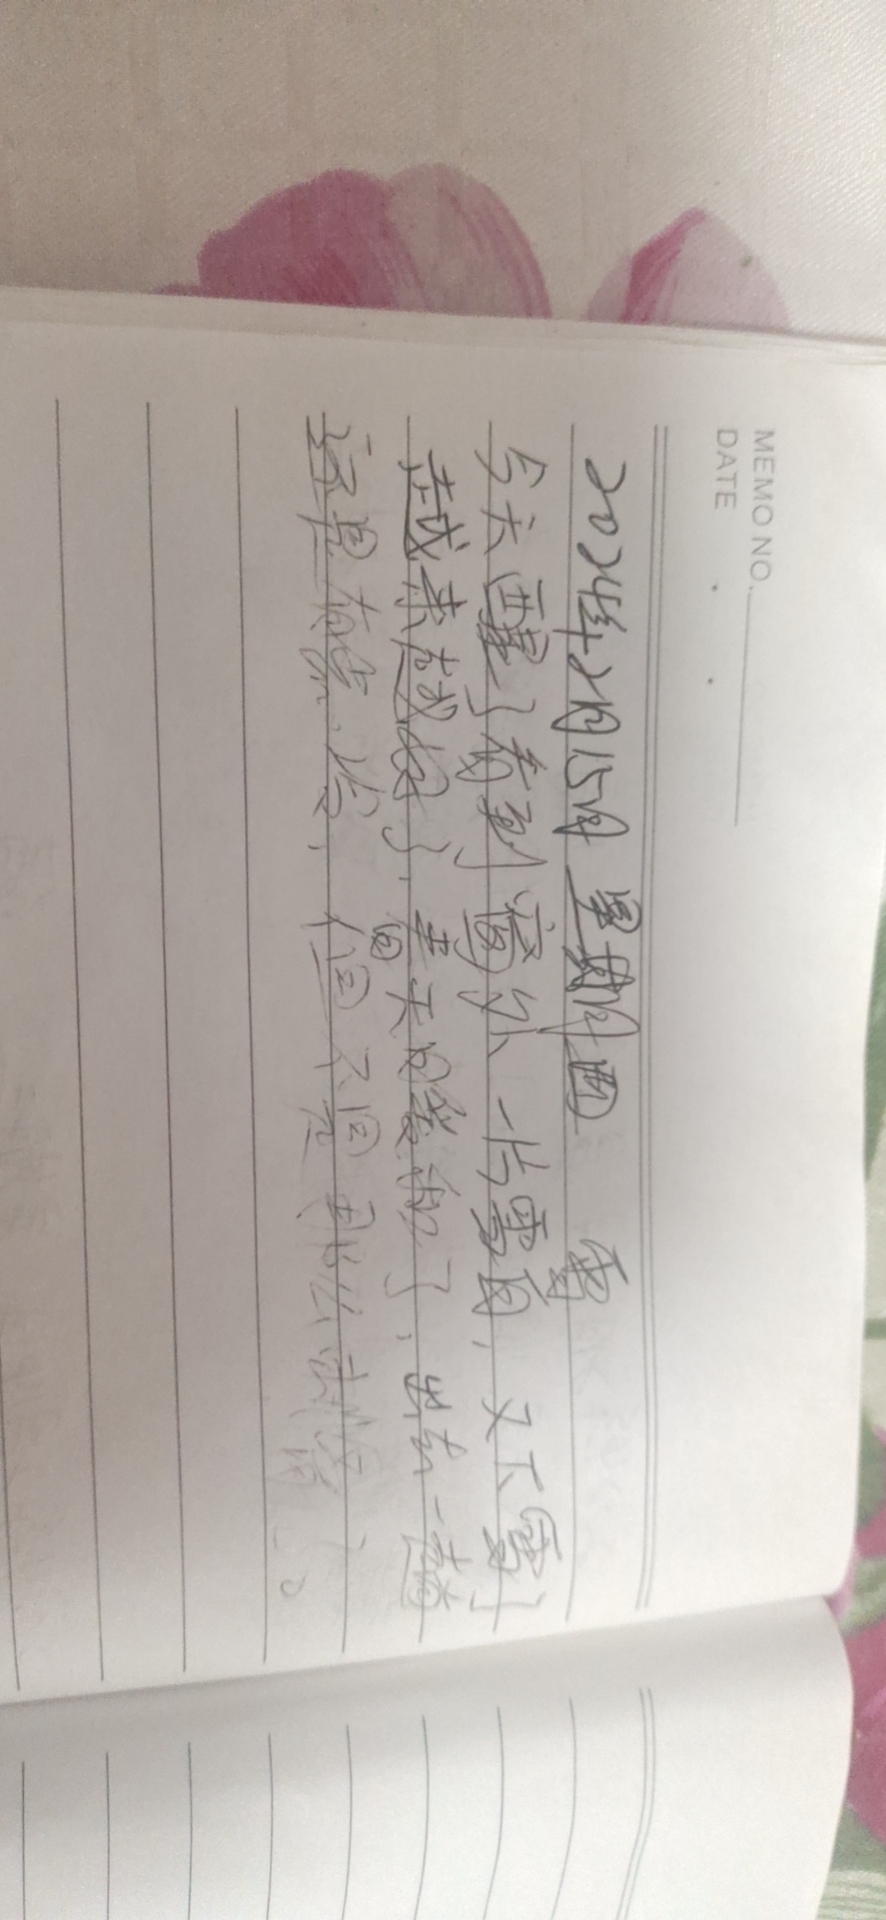 MEMO NO.
DATE
2024年2月15日 星期四 雪
今天醒了看到窗外一片雪白，又下雪了
越来越好了，春天的感觉了，出去一趟
还是有点冷，但不是那么刺骨了。